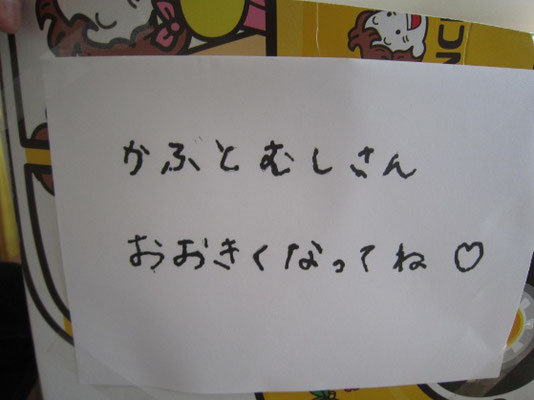 かぶとむしさん
おおきくなってね♡